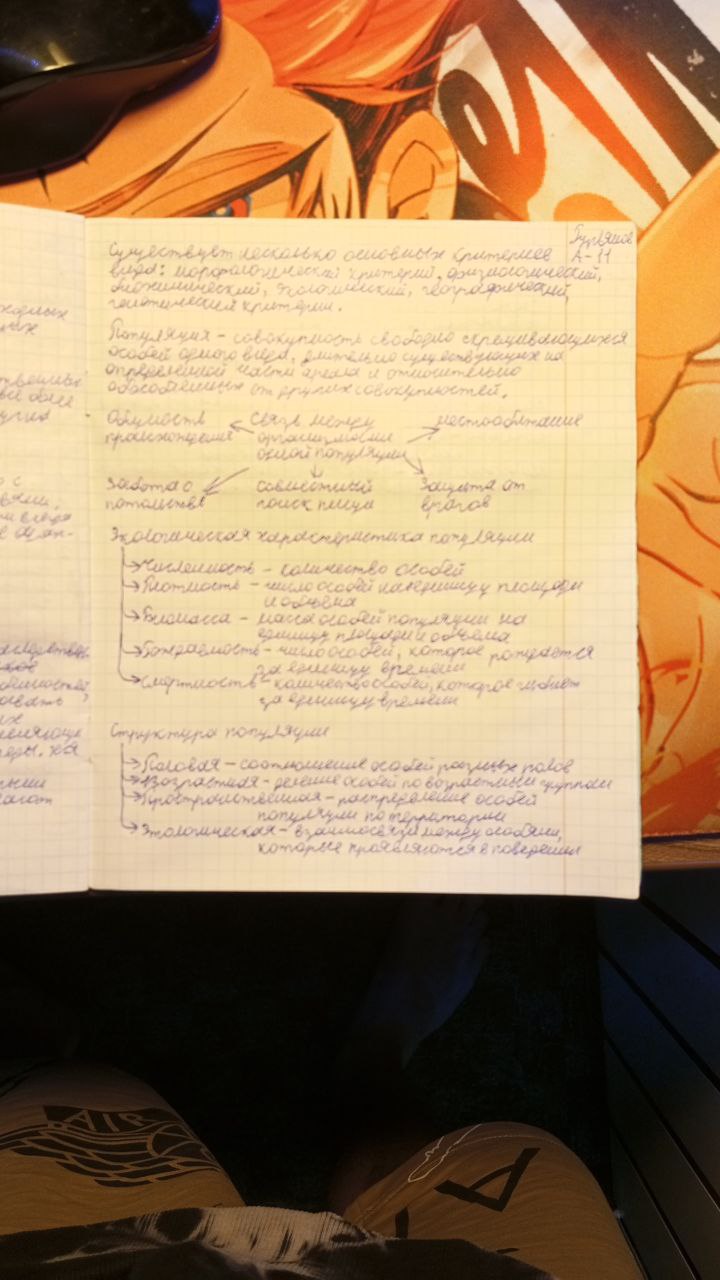 Существует несколько основных критериев
вида: морфологический критерий, физиологический,
биохимический, экологический, географический,
генетический критерии.
А-11
Популяция - совокупность свободно скрещивающихся
особей одного вида, длительно существующих на
определённой части ареала и относительно
обособленных от других совокупностей.
Общность
происхождения
связь между
организмами
одной популяции
местообитание
Забота о
потомстве
совместный
поиск пищи
Защита от
врагов
Экологическая характеристика популяции
Численность - количество особей
Плотность - число особей на единицу площади
и объёма
Биомасса - масса особей популяции на
единицу площади и объёма
Рождаемость - число особей, которое рождается
за единицу времени
Смертность - количество особей, которое гибнет
за единицу времени
Структура популяции
Половая - соотношение особей разных полов
Возрастная - деление особей по возрастным группам
Пространственная - распределение особей
популяции по территории
Этологическая - взаимосвязи между особями,
которые проявляются в поведении
AIR